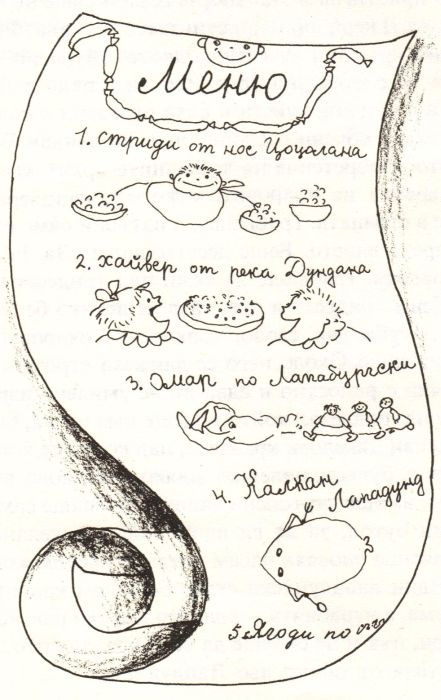 Меню
1. Стриди от нос Цоцолана
2. Хайвер от река Дундана
3. Омар по Лападургски
4. Калкан Лападунд
5. Ягоди по